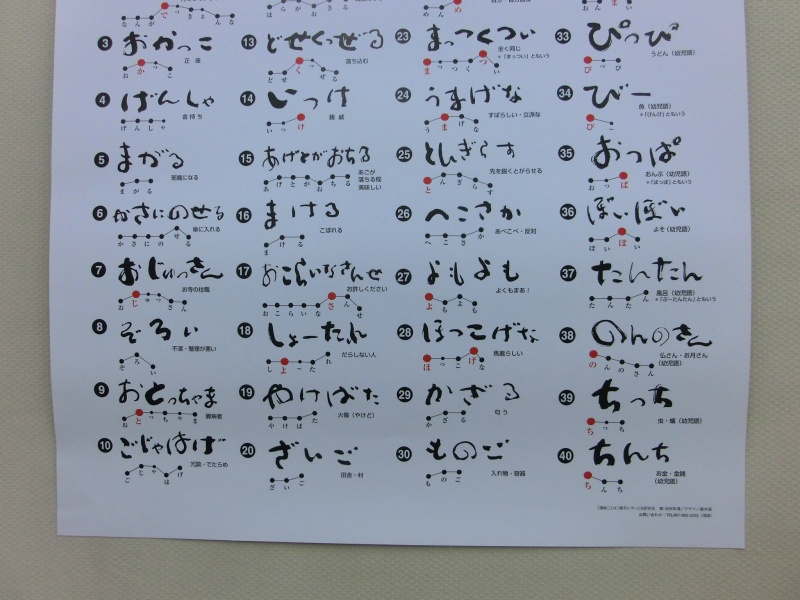 3 おかっこ
正座
おかっこ
4 げんしゃ
金持ち
げんしゃ
5 まがる
邪魔になる
まがる
6 かさにのせる
傘に入れる
かさにのせる
7 おじゅっさん
お寺の住職
おじゅっさん
8 ぞろい
不潔・整理が悪い
ぞろい
9 おとっちゃま
臆病者
おとっちゃま
10 ごじゃはげ
冗談・でたらめ
ごじゃはげ
13 どせくっせる
落ち込む
どせくっせる
14 いっけ
親戚
いっけ
15 あげとがおちる
あごが
落ちる程
美味しい
あげとがおちる
16 まける
こぼれる
まける
17 おこらいなさんせ
お許しください
おこらいなさんせ
18 しょーたれ
だらしない人
しょーたれ
19 やけばた
火傷（やけど）
やけばた
20 ざいご
田舎・村
ざいご
23 まっつくつい
全く同じ
＊「まっつい」ともいう
まっつくつい
24 うまげな
すばらしい・立派な
うまげな
25 とんぎらす
先を鋭くとがらせる
とんぎらす
26 へこさか
あべこべ・反対
へこさか
27 よもよも
よくもまあ！
よもよも
28 ほっこげな
馬鹿らしい
ほっこげな
29 かざる
匂う
かざる
30 ものご
入れ物・容器
ものご
33 ぴっぴ
うどん（幼児語）
ぴっぴ
34 びー
魚（幼児語）
＊「びんび」ともいう
びー
35 おっぱ
おんぶ（幼児語）
＊「ばっぱ」ともいう
おっぱ
36 ぼいぼい
よそ（幼児語）
ぼいぼい
37 たんたん
風呂（幼児語）
＊「ぶーたんたん」ともいう
たんたん
38 ののさん
仏さん・お月さん
（幼児語）
39 ちっち
虫・蟻（幼児語）
ちっち
40 ちんち
お金・金銭
（幼児語）
ちんち